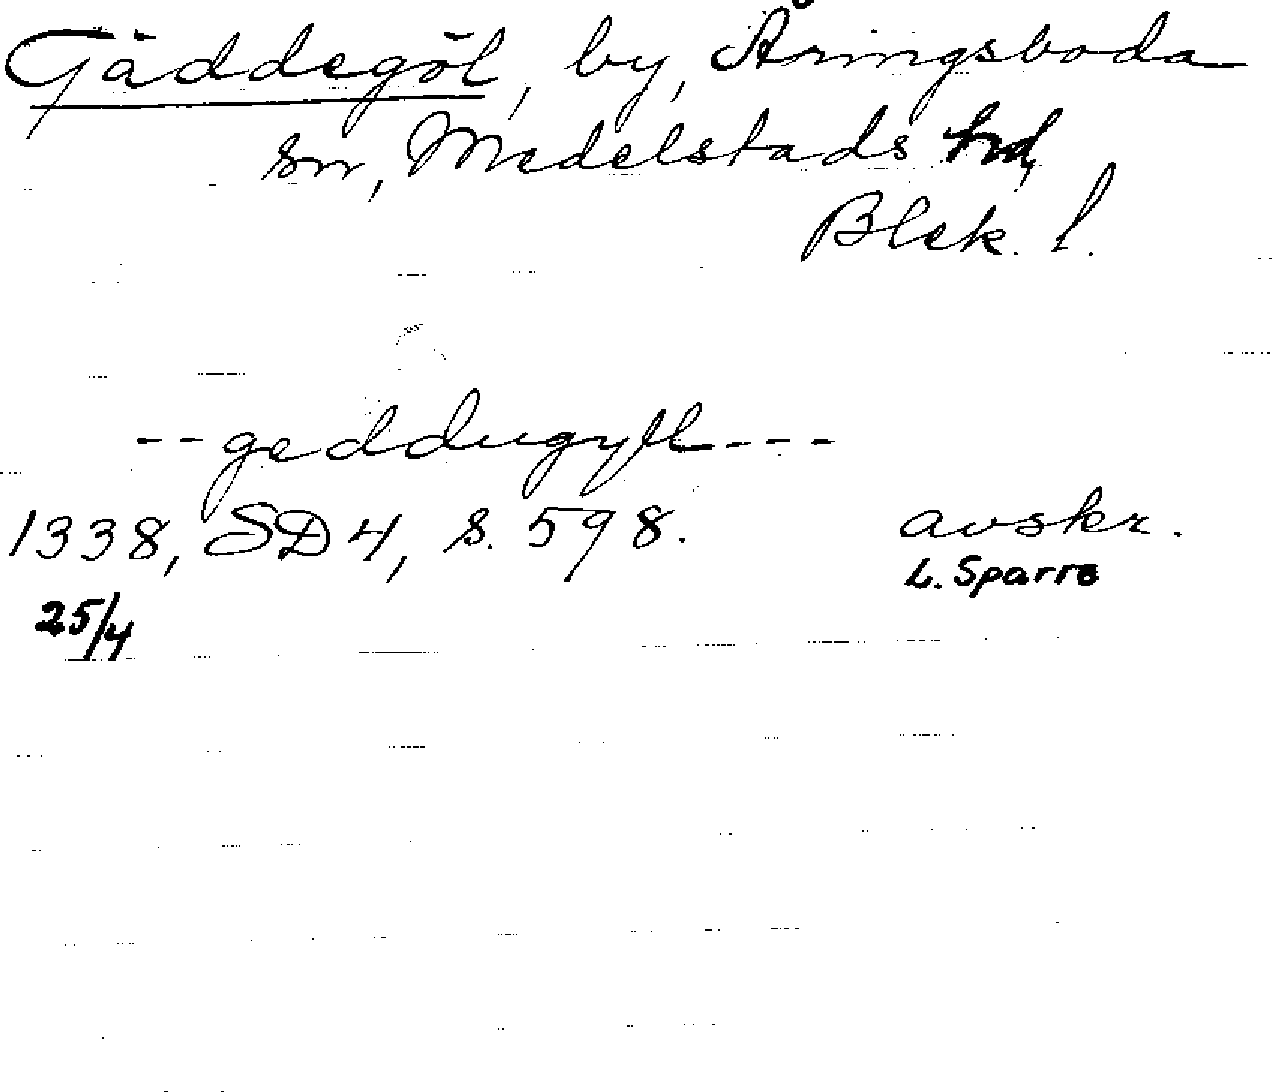 Gäddegöl, by, Åringsboda
sn, Medelstads hd,
Blek. l.
--geddugyll---
1338, SD 4, s. 598. avskr.
25/4 L. Sparre